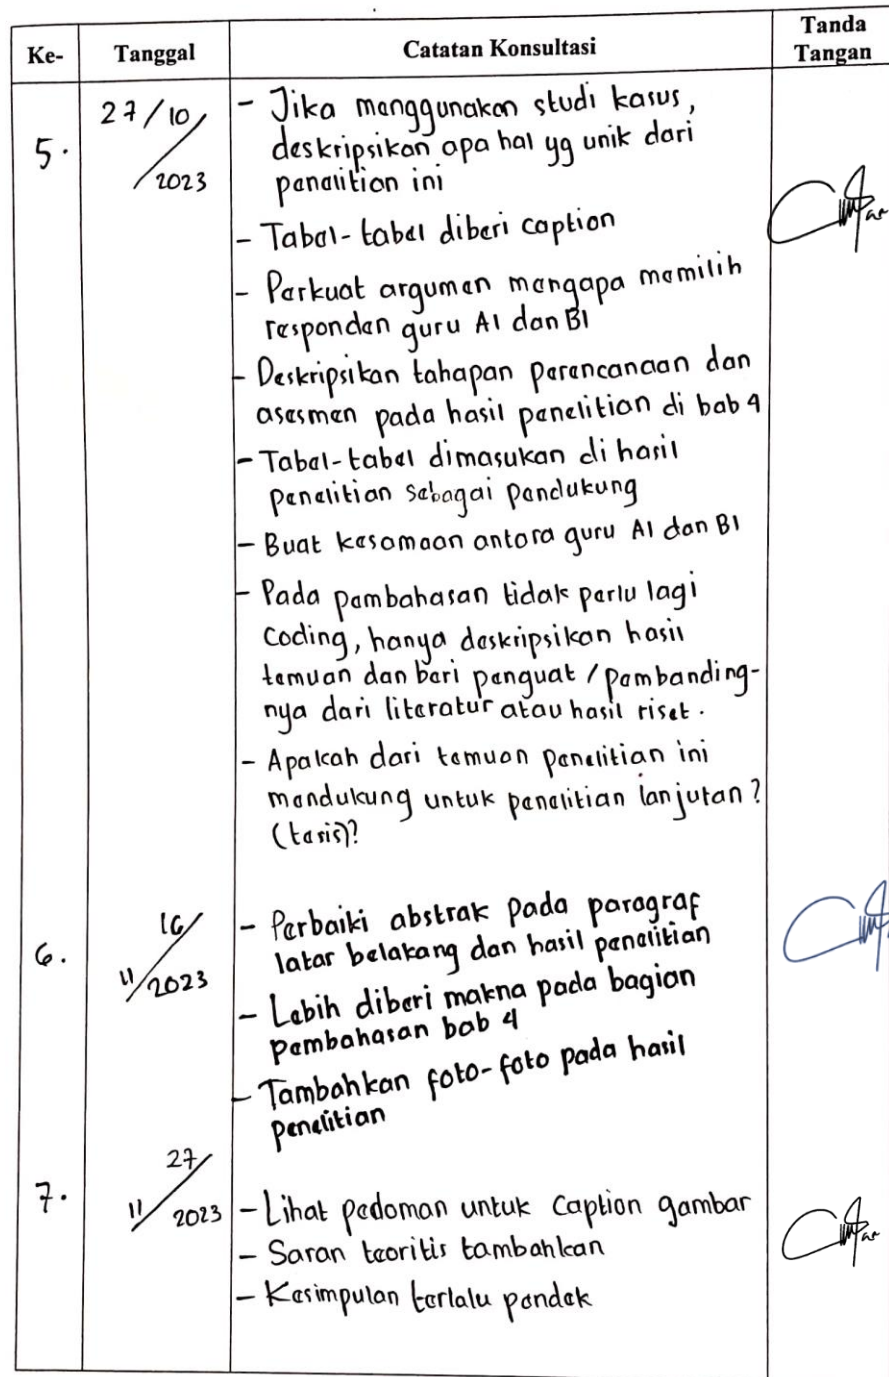 Ke- Tanggal Catatan Konsultasi Tanda Tangan
5. 27/10/2023 - Jika menggunakan studi kasus,
deskripsikan apa hal yg unik dari
penelitian ini
- Tabel-tabel diberi caption
- Perkuat argumen mengapa memilih
responden guru A1 dan B1
- Deskripsikan tahapan perencanaan dan
asesmen pada hasil penelitian di bab 4
- Tabel-tabel dimasukan di hasil
penelitian sebagai pendukung
- Buat kesamaan antara guru A1 dan B1
- Pada pembahasan tidak perlu lagi
Coding, hanya deskripsikan hasil
temuan dan beri penguat / pembanding-
nya dari literatur atau hasil riset.
- Apakah dari temuan penelitian ini
mendukung untuk penelitian lanjutan?
(tesis)?
6. 16/11/2023 - Perbaiki abstrak pada paragraf
latar belakang dan hasil penelitian
- Lebih diberi makna pada bagian
pembahasan bab 4
- Tambahkan foto-foto pada hasil
penelitian
7. 27/11/2023 - Lihat pedoman untuk Caption gambar
- Saran teoritis tambahkan
- Kesimpulan terlalu pendek